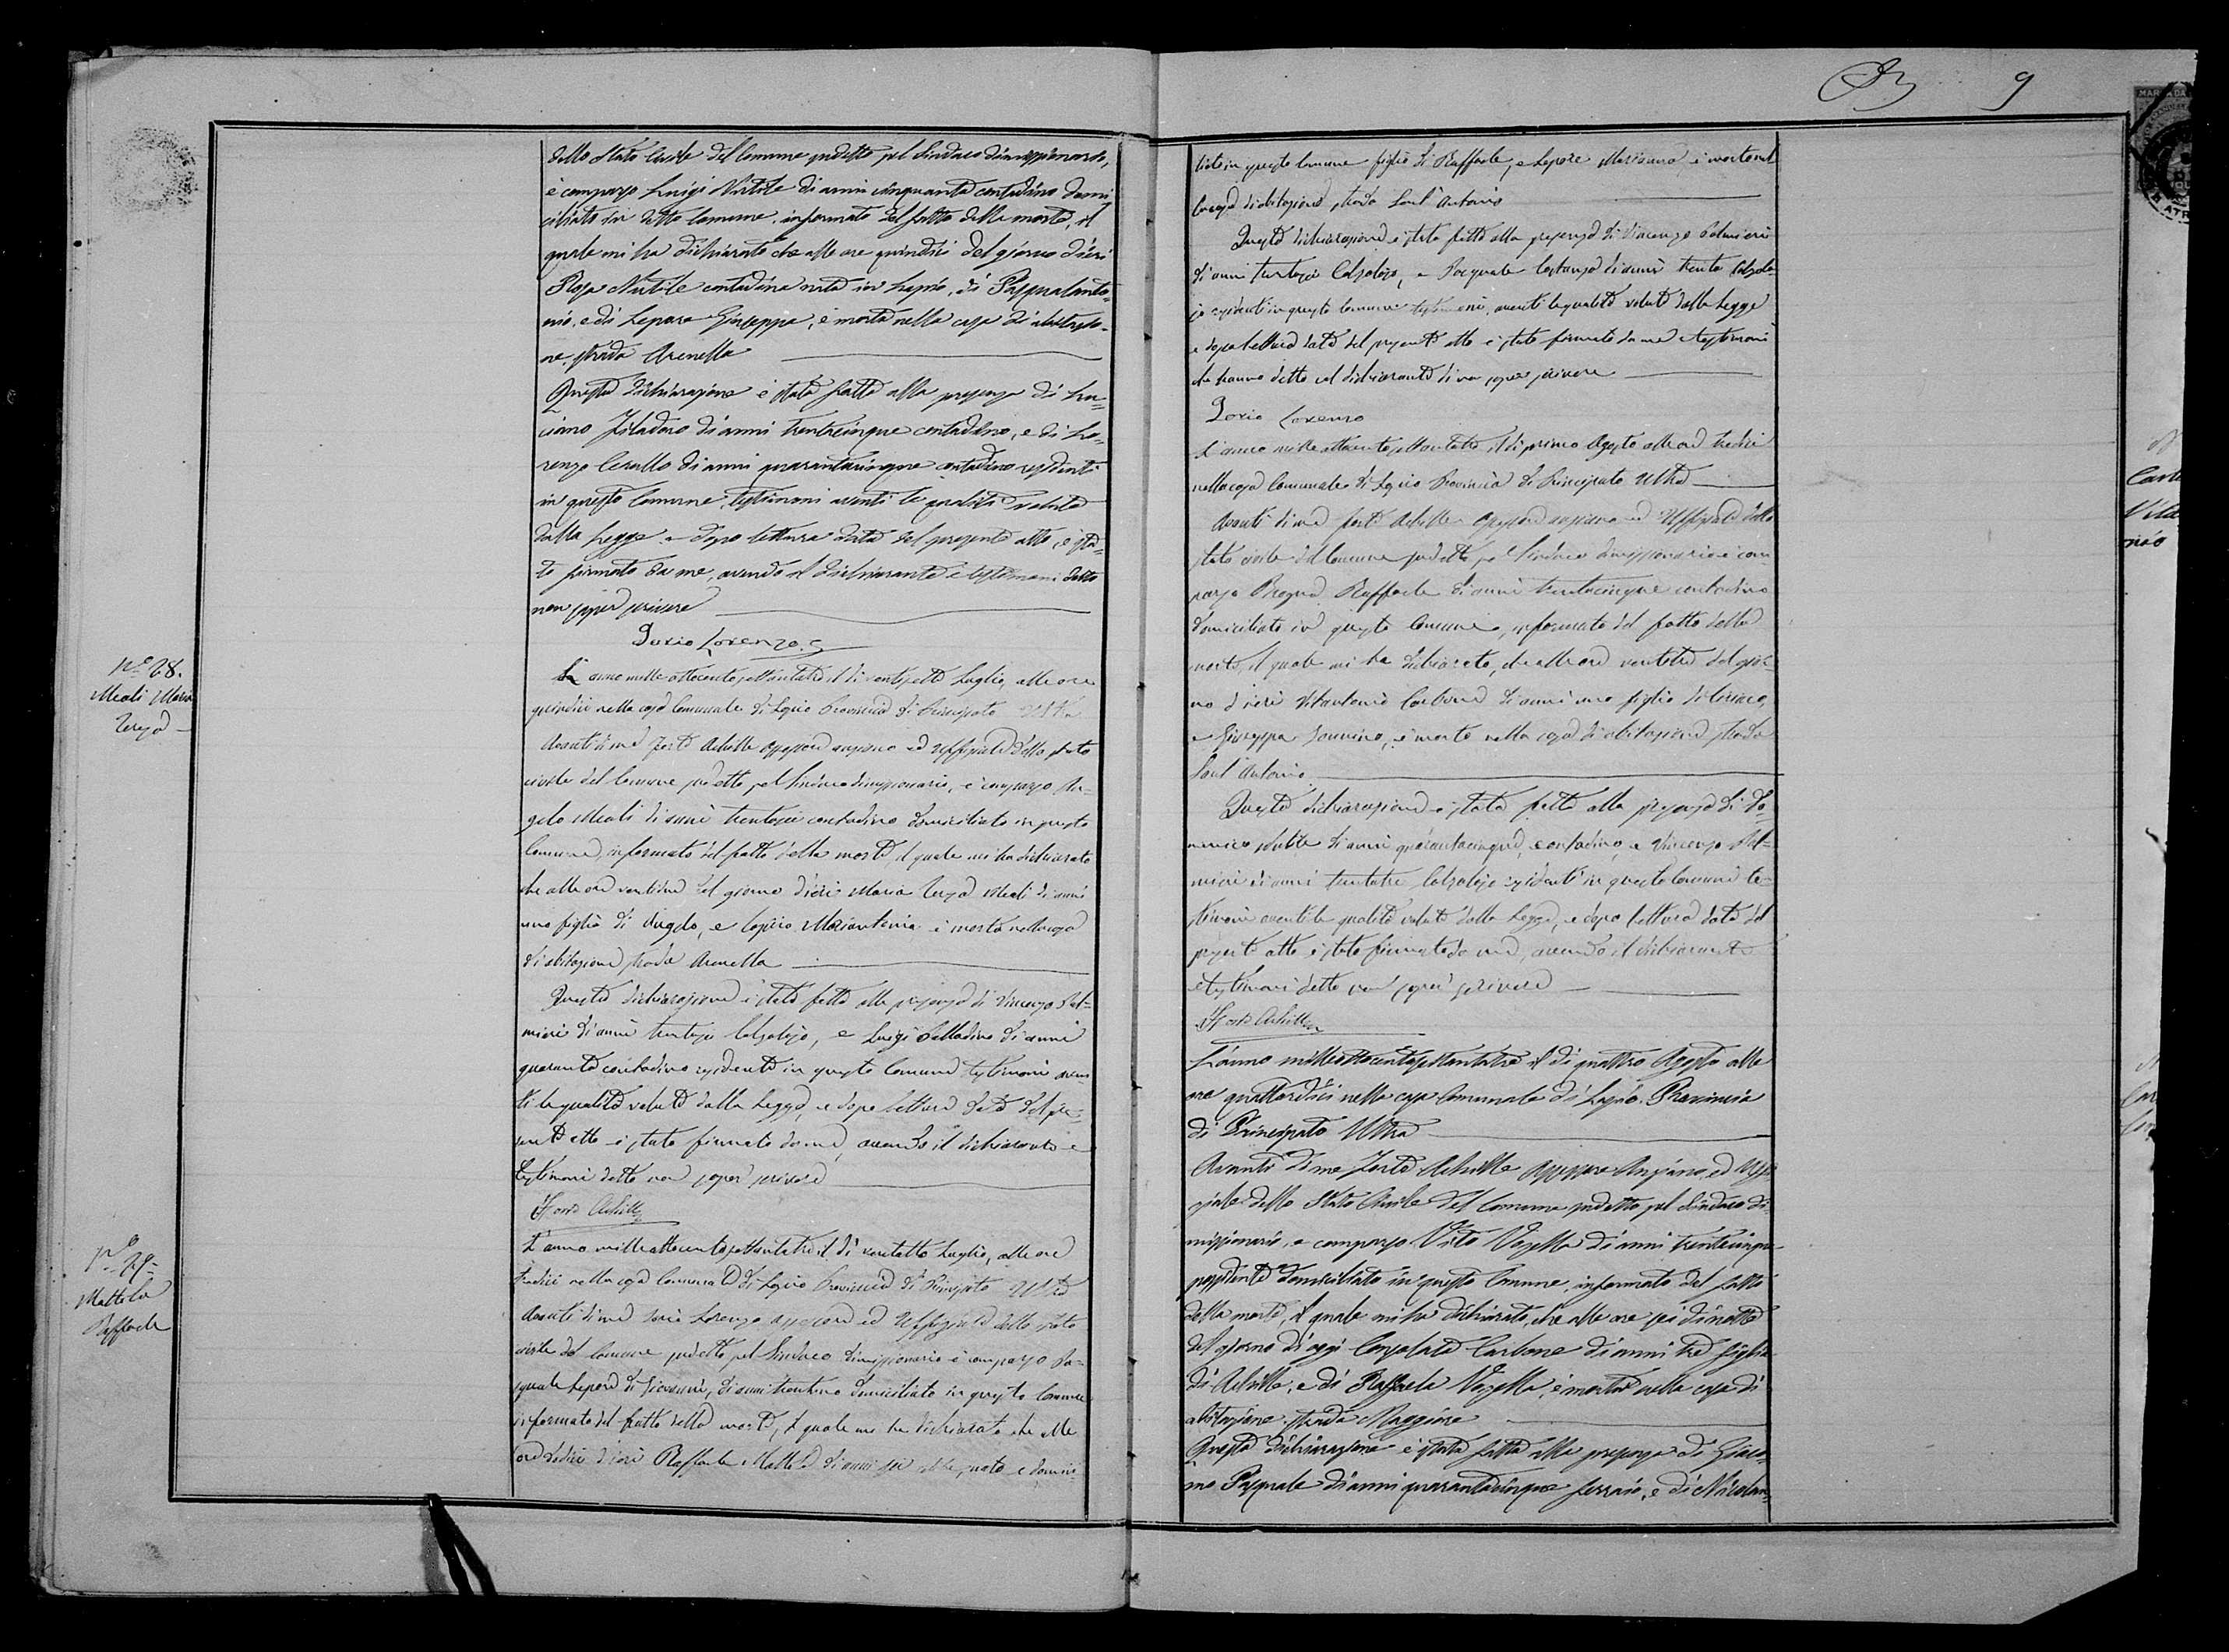 dello Stato Civile del Comune sudetto pel Sindaco dimissionario,
è comparso Luigi Nutile di anni cinquanta contadino domi
ciliato in detto Comune, informato del fatto della morte, il
quale mi ha dichiarato che alle ore quindici del giorno d'ieri
Rosa Nutile contadina nata in Lapio, di Pasqualanto-
nio, e di Lepore Giuseppa, è morta nella casa di abitazio-
ne, strada Arenella
Questa dichiarazione è stata fatta alla presenza di Lu-
ciano Filadoro di anni trentacinque contadino, e di Lo-
renzo Cerullo di anni quarantacinque contadino residenti
in questo Comune, testimoni aventi le qualità volute
dalla Legge e dopo lettura data del presente atto, è sta-
to firmato da me, avendo il dichiarante e testimoni detto
non saper scrivere
Iorio Lorenzo
N.º 28.
Meoli Maria
Teresa
L'anno mille ottocento settantatre il dì ventisette Luglio, alle ore
quindici nella casa Comunale di Lapio Provincia di Principato Ultra
Avanti di me Forte Achille Assessore anziano ed Uffiziale dello stato
civile del Comune sudetto pel Sindaco dimissionario, è comparso An-
gelo Meoli di anni trentasei contadino domiciliato in questo
Comune, informato del fatto della morte, il quale mi ha dichiarato
che alle ore ventidue del giorno d'ieri Maria Teresa Meoli di anni
uno figlia di Angelo, e Mariantonia è morta nella casa
di abitazione strada Arenella
Questa dichiarazione è stata fatta alla presenza di Vincenzo Pal-
mieri di anni trentasei Calzolajo, e Luigi Palladino di anni
quaranta contadino residenti in questo Comune testimoni aven-
ti le qualità volute dalla Legge, e dopo lettura data del pre-
sente atto è stato firmato da me, avendo il dichiarante e
testimoni detto non saper scrivere
Forte Achille
N.º 29.
Mattola
Raffaele
L'anno mille ottocento settantatre il dì ventotto Luglio, alle ore
tredici nella casa Comunale di Lapio Provincia di Principato Ultra
Avanti di me Iorio Lorenzo assessore ed Uffiziale dello stato
civile del Comune sudetto pel Sindaco dimissionario è comparso Pa-
squale Lepore di Giovanni, di anni trentuno domiciliato in questo Comune
informato del fatto della morte, il quale mi ha dichiarato che alle
ore dodici d'ieri Raffaele di anni sei nato e domici-
9
liato in questo Comune figlio di Raffaele, e Lepore è morto nel
luogo di abitazione strada Sant'Antonio
Questa dichiarazione è stata fatta alla presenza di Vincenzo Palmieri
di anni trentasei Calzolajo, e Pasquale Costanzo di anni trenta Calzola-
jo residenti in questo Comune testimoni, aventi le qualità volute dalla Legge
e dopo lettura data del presente atto è stato firmato da me e testimoni
che hanno detto col dichiarante di non saper scrivere
Iorio Lorenzo
L'anno mille ottocento settantatre il dì primo Agosto alle ore tredici
nella casa Comunale di Lapio Provincia di Principato Ultra
Avanti di me Forte Achille Assessore anziano ed Uffiziale dello
stato civile del Comune sudetto, pel Sindaco dimissionario è com
parso Raffaele di anni trentacinque contadino
domiciliato in questo Comune, informato del fatto della
morte, il quale mi ha dichiarato, che alle ore ventitre del gior-
no d'ieri Vitantonio Carbone di anni uno figlio di Ciriaco,
e Giuseppa, è morto nella casa di abitazione strada
Sant'Antonio
Questa dichiarazione è stata fatta alla presenza di Do-
menico Nutile di anni quarantacinque, contadino, e Vincenzo Pal-
mieri di anni trentatre Calzolajo residenti in questo Comune te-
stimoni aventi le qualità volute dalla Legge, e dopo lettura data del
presente atto è stato firmato da me, avendo il dichiarante
e testimoni detto non saper scrivere
Forte Achille
L'anno milleottocentosettantatre il dì quattro Agosto alle
ore quattordici nella casa Comunale di Lapio Provincia
di Principato Ultra
Avanti di me Forte Achille Assessore Anziano, ed Uffi-
ziale dello Stato Civile del Comune sudetto pel Sindaco di-
missionario, è comparso Vito Vozella di anni trentacinque
possidente domiciliato in questo Comune, informato del fatto
della morte, il quale mi ha dichiarato, che alle ore sei di notte
del giorno d'oggi Consolata Carbone di anni tre figlia
di Achille, e di Raffaela Vozella, è morta nella casa di
abitazione strada Maggiore
Questa dichiarazione è stata fatta alla presenza di Giaco-
mo Pasquale di anni quarantacinque ferraio, e di Nicolan-